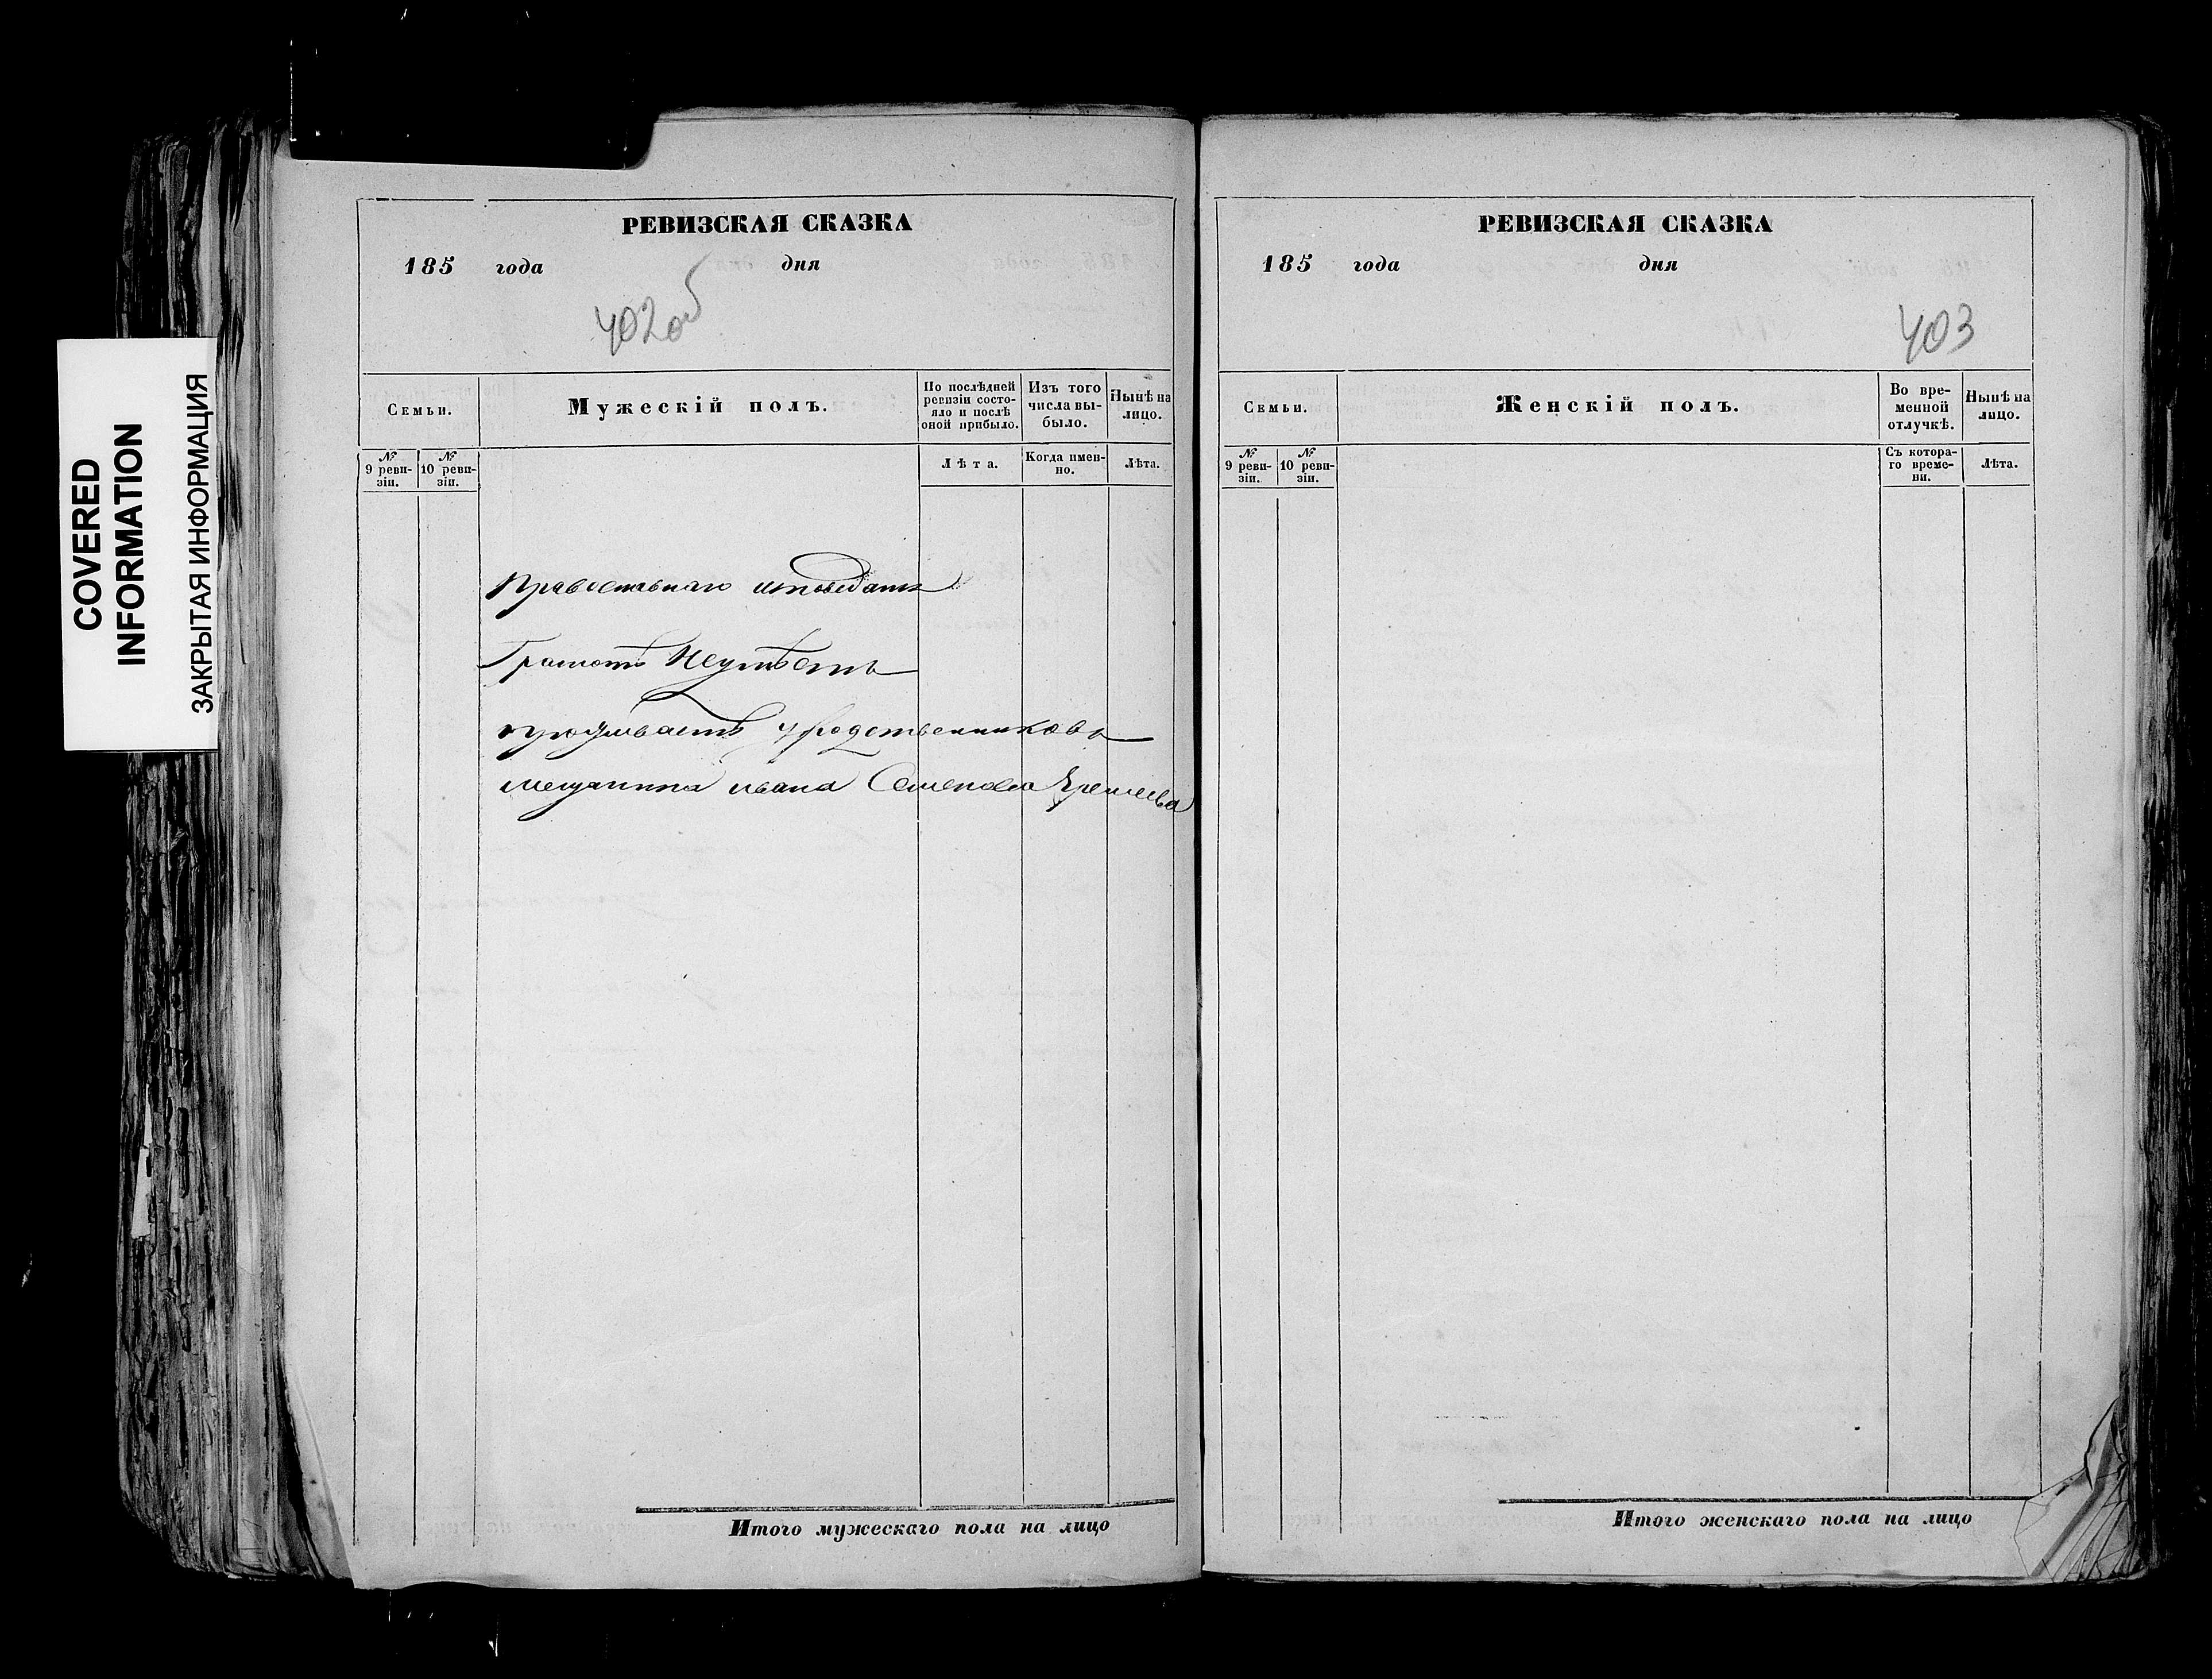 COVERED
INFORMATION
ЗАКРЫТАЯ ИНФОРМАЦИЯ
РЕВИЗСКАЯ СКАЗКА
185 года дня
402об
Семьи.
Мужескій полъ.
По послѣдней
ревизіи состо-
яло и послѣ
оной прибыло.
Изъ того
числа вы-
было.
Нынѣ на
лицо.
№
9 реви-
зіи.
№
10 реви-
зіи.
Лѣта.
Когда имен-
но.
Лѣта.
Православнаго исповѣданія
Грамотѣ Неумѣетъ
проживаетъ у родственниковъ
мещанина ивана Семенова
Итого мужескаго пола на лицо
РЕВИЗСКАЯ СКАЗКА
185 года дня
403
Семьи.
Женскій полъ.
Во вре-
менной
отлучкѣ.
Нынѣ на
лицо.
№
9 реви-
зіи.
№
10 реви-
зіи.
Съ котора-
го време-
ни.
Лѣта.
Итого женскаго пола на лицо